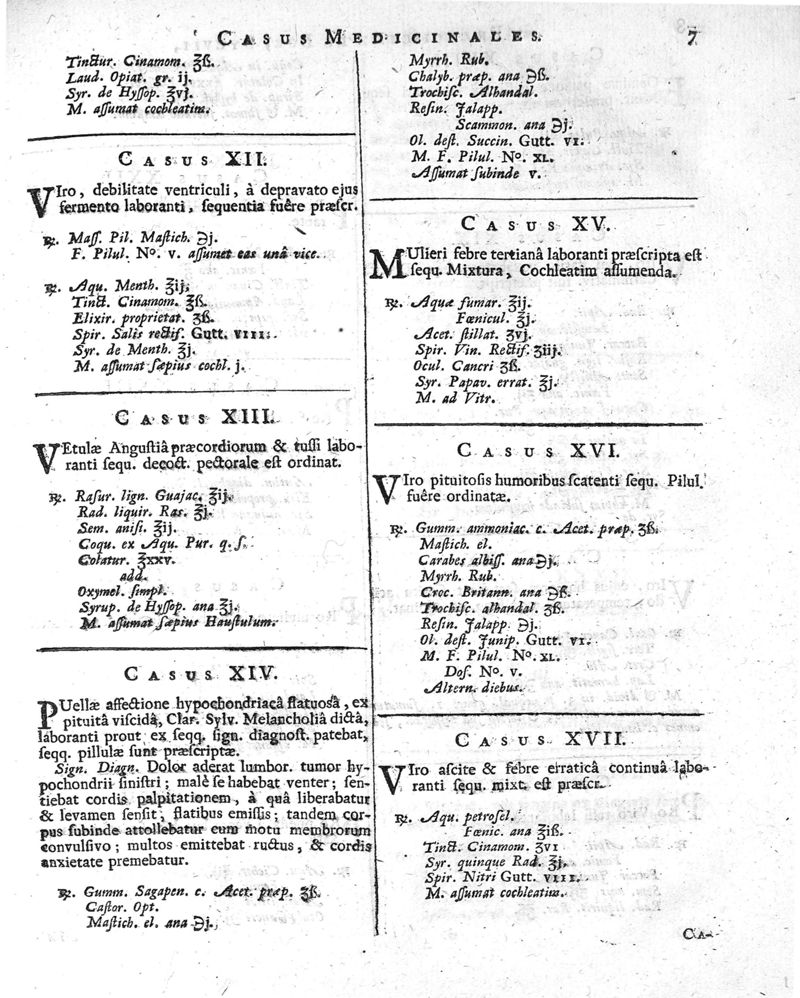 CASUS MEDICINALES. 7
Tinctur. Cinamom. ℥ß.
Laud. Opiat. gr. ij.
Syr. de Hyssop. ℥vj.
M. assumat cochleatim.
CASUS XII.
VIro, debilitate ventriculi, à depravato ejus
fermento laboranti, sequentia fuêre præscr.
℞. Mass. Pil. Mastich. ℈j.
F. Pilul. No. v. assumet eas unâ vice.
℞. Aqu. Menth. ℥ij.
Tinct. Cinamom. ℥ß.
Elixir. proprietat. ʒß.
Spir. Salis rectif. Gutt. VIII.
Syr. de Menth. ℥j.
M. assumat sæpius cochl. j.
CASUS XIII.
VEtulæ Angustiâ præcordiorum & tussi labo-
ranti sequ. decoct. pectorale est ordinat.
℞. Rasur. lign. Guajac. ℥ij.
Rad. liquir. Ras. ℥j.
Sem. anisi. ʒij.
Coqu. ex Aqu. Pur. q. s.
Colatur. ℥xxv.
add.
Oxymel. simpl.
Syrup. de Hyssop. ana ℥j.
M. assumat sæpius Haustulum.
CASUS XIV.
PUellæ affectione hypochondriacâ flatuosâ, ex
pituitâ viscidâ, Clar. Sylv. Melancholiâ dictâ,
laboranti prout ex seqq. sign. diagnost. patebat,
seqq. pillulæ sunt præscriptæ.
Sign. Diagn. Dolor aderat lumbor. tumor hy-
pochondrii sinistri; malè se habebat venter; sen-
tiebat cordis palpitationem, à quâ liberabatur
& levamen sensit, flatibus emissis; tandem cor-
pus subinde attollebatur cum motu membrorum
convulsivo; multos emittebat ructus, & cordis
anxietate premebatur.
℞. Gumm. Sagapen. c. Acet. præp. ʒß.
Castor. Opt.
Mastich. el. ana ℈j.
Myrrh. Rub.
Chalyb. præp. ana ℈ß.
Trochisc. Alhandal.
Resin. Jalapp.
Scammon. ana ℈j.
Ol. dest. Succin. Gutt. VI.
M. F. Pilul. No. XL.
Assumat subinde v.
CASUS XV.
MUlieri febre tertianâ laboranti præscripta est
sequ. Mixtura, Cochleatim assumenda.
℞. Aquæ fumar. ℥ij.
Fœnicul. ℥j.
Acet. stillat. ʒvj.
Spir. Vin. Rectif. ʒiij.
Ocul. Cancri ʒß.
Syr. Papav. errat. ℥j.
M. ad Vitr.
CASUS XVI.
VIro pituitosis humoribus scatenti sequ. Pilul.
fuêre ordinatæ.
℞. Gumm. ammoniac. c. Acet. præp. ʒß.
Mastich. el.
Carabes albiss. ana ℈j.
Myrrh. Rub.
Croc. Britann. ana ℈ß.
Trochisc. alhandal. ʒß.
Resin. Jalapp. ℈j.
Ol. dest. Junip. Gutt. VI.
M. F. Pilul. No. XL.
Dos. No. v.
Altern. diebus.
CASUS XVII.
VIro ascite & febre erraticâ continuâ labo-
ranti sequ. mixt. est præscr.
℞. Aqu. petrosel.
Fœnic. ana ℥iß.
Tinct. Cinamom. ʒVI
Syr. quinque Rad. ℥j.
Spir. Nitri Gutt. VIII.
M. assumat cochleatim.
CA-